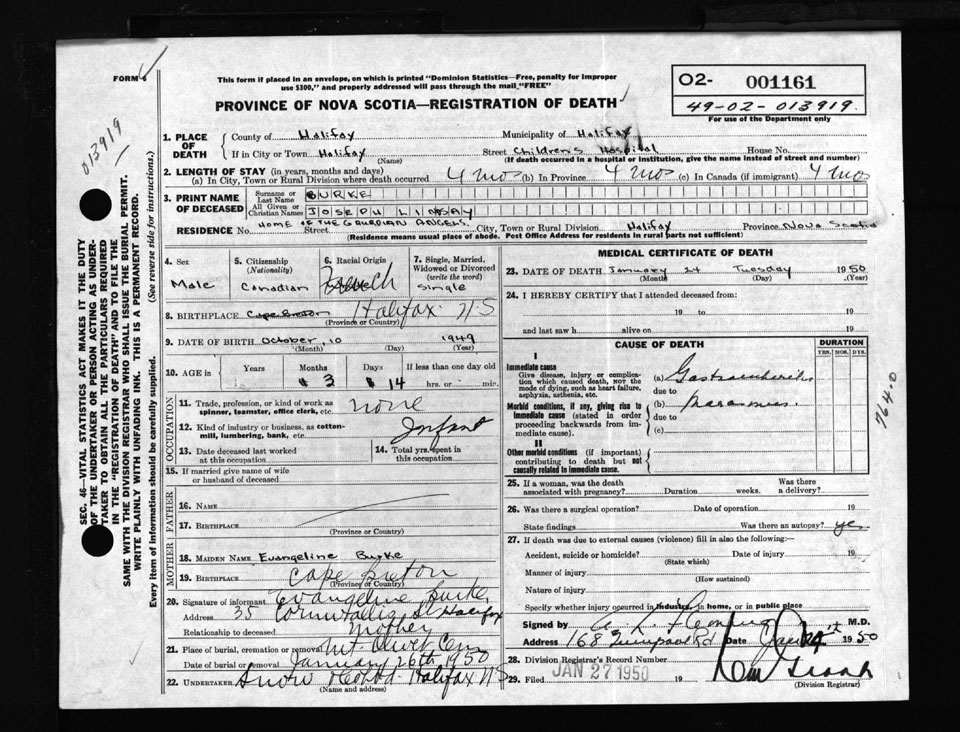 FORM 6
This form if placed in an envelope, on which is printed "Dominion Statistics—Free, penalty for improper
use $300," and properly addressed will pass through the mail "FREE"
PROVINCE OF NOVA SCOTIA—REGISTRATION OF DEATH
O2- 001161
49-02-013919
For use of the Department only
013919
SEC. 46—VITAL STATISTICS ACT MAKES IT THE DUTY
OF THE UNDERTAKER OR PERSON ACTING AS UNDER-
TAKER TO OBTAIN ALL THE PARTICULARS REQUIRED
IN THE "REGISTRATION OF DEATH" AND TO FILE THE
SAME WITH THE DIVISION REGISTRAR WHO SHALL ISSUE THE BURIAL PERMIT.
WRITE PLAINLY WITH UNFADING INK. THIS IS A PERMANENT RECORD.
Every item of information should be carefully supplied. (See reverse side for instructions.)
1. PLACE OF DEATH
County of Halifax Municipality of Halifax
If in City or Town Halifax Street Children's Hospital House No.
(Name) (If death occurred in a hospital or institution, give the name instead of street and number)
2. LENGTH OF STAY (in years, months and days)
(a) In City, Town or Rural Division where death occurred 4 mos (b) In Province 4 mos (c) In Canada (if immigrant) 4 mos
3. PRINT NAME OF DECEASED
Surname or Last Name BURKE
All Given or Christian Names JOSEPH LINSAY
HOME OF THE GAURDIAN ANGELS.
RESIDENCE No. Street City, Town or Rural Division Halifax Province Nova Scotia
(Residence means usual place of abode. Post Office Address for residents in rural parts not sufficient)
4. Sex
Male
5. Citizenship (Nationality)
Canadian
6. Racial Origin
French
7. Single, Married, Widowed or Divorced (write the word)
Single
8. BIRTHPLACE Cape Breton Halifax N S
(Province or Country)
9. DATE OF BIRTH October 10 1949
(Month) (Day) (Year)
10. AGE in Years Months 3 Days 14 If less than one day old hrs. or min.
OCCUPATION
11. Trade, profession, or kind of work as spinner, teamster, office clerk, etc. none
12. Kind of industry or business, as cotton-mill, lumbering, bank, etc. Infant
13. Date deceased last worked at this occupation
14. Total yrs. spent in this occupation
15. If married give name of wife or husband of deceased
FATHER
16. NAME
17. BIRTHPLACE
(Province or Country)
MOTHER
18. MAIDEN NAME Evangeline Burke
19. BIRTHPLACE Cape Breton
(Province or Country)
20. Signature of informant Evangeline Burke
Address 35 Cornwallis St Halifax
Relationship to deceased Mother
21. Place of burial, cremation or removal Mt. Olivet Cem
Date of burial or removal January 26th 1950
22. UNDERTAKER Snow Halifax NS
(Name and address)
MEDICAL CERTIFICATE OF DEATH
23. DATE OF DEATH January 24 Tuesday 1950
(Month) (Day) (Year)
24. I HEREBY CERTIFY that I attended deceased from:
19 to 19
and last saw h alive on 19
CAUSE OF DEATH
DURATION
YRS. MOS. DYS.
I
Immediate cause
Give disease, injury or complication which caused death, not the mode of dying, such as heart failure, asphyxia, asthenia, etc.
(a) Gastroenteritis
due to
Morbid conditions, if any, giving rise to immediate cause (stated in order proceeding backwards from immediate cause).
(b) marasmus.
due to
(c)
II
Other morbid conditions (if important) contributing to death but not causally related to immediate cause.
764.0
25. If a woman, was the death associated with pregnancy? Duration weeks. Was there a delivery?
26. Was there a surgical operation? Date of operation 19
State findings Was there an autopsy? yes
27. If death was due to external causes (violence) fill in also the following:—
Accident, suicide or homicide? Date of injury 19
(State which)
Manner of injury
(How sustained)
Nature of injury
Specify whether injury occurred in industry, in home, or in public place
Signed by M.D.
Address 168 Quinpool Rd Date 1950
28. Division Registrar's Record Number
29. Filed JAN 27 1950 19
(Division Registrar)